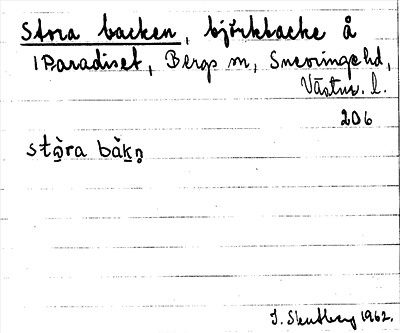 Stora backen, björkbacke å
1 Paradiset, Bergs sn, Snevringe hd,
Västm. l.
206
stò̱ra bàḵn̥
1962.